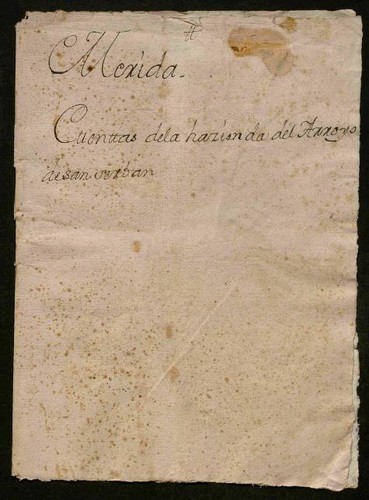 Merida.
Cuenttas dela hazienda del Arroyo
de san serban